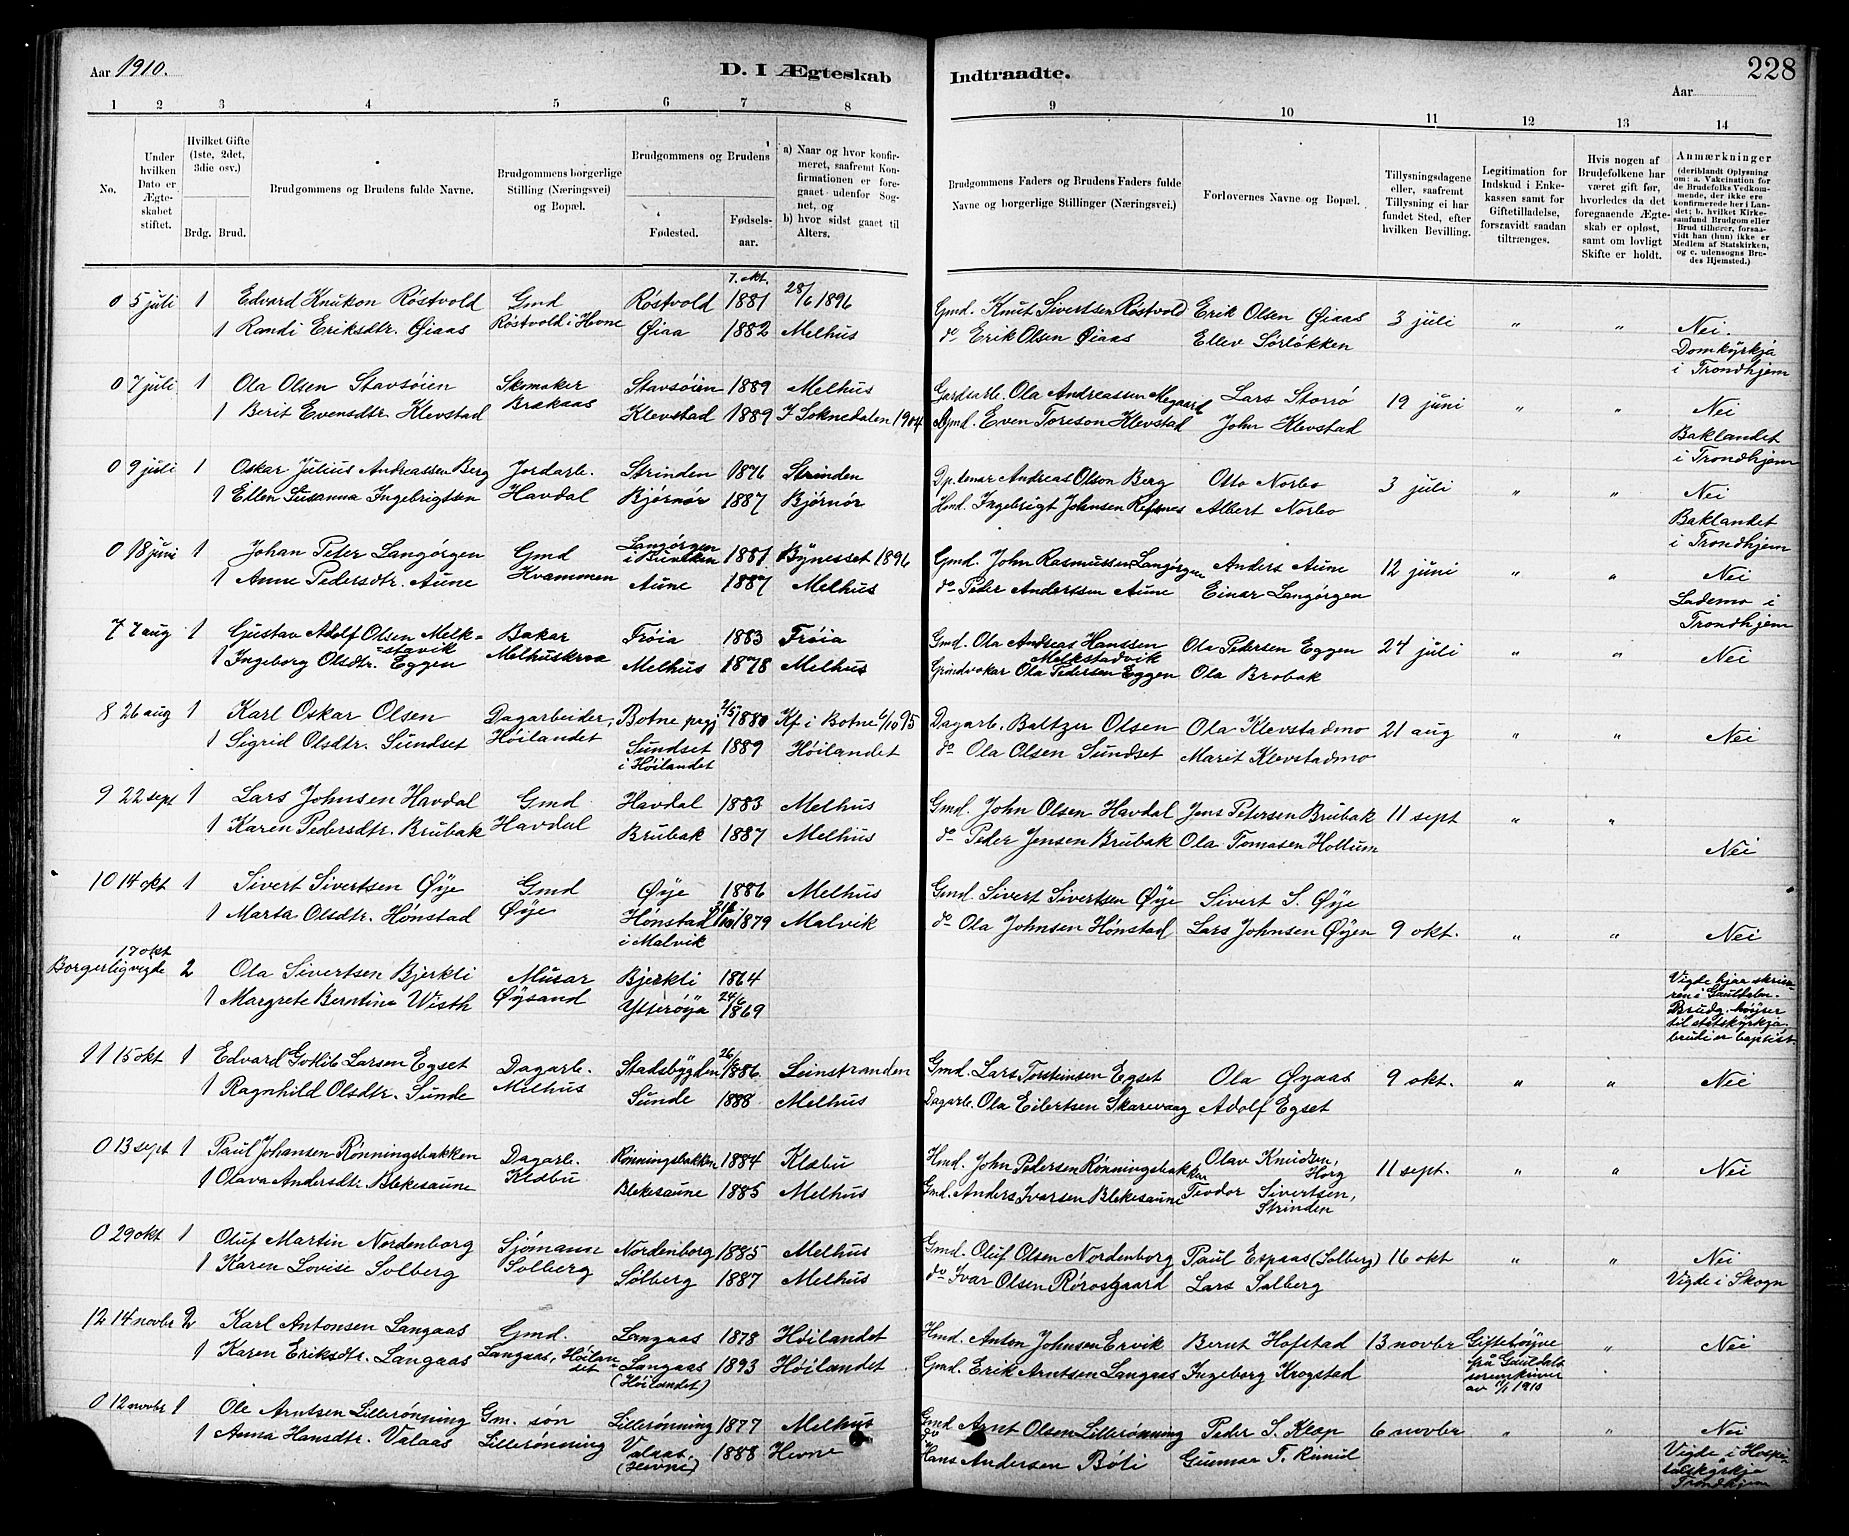 Aar 1910.
D. I Ægteskab
1 2 3 4 5 6 7 8
No.
Under hvilken Dato er Ægteskabet stiftet.
Hvilket Gifte (1ste, 2det, 3die osv.)
Brdg. Brud.
Brudgommens og Brudens fulde Navne.
Brudgommens borgerlige Stilling (Næringsvei) og Bopæl.
Brudgommens og Brudens
Fødested. Fødselsaar.
a) Naar og hvor konfirmeret, saafremt Konfirmationen er foregaaet udenfor Sognet, og
b) hvor sidst gaaet til Alters.
7. okt.
0 5 juli 1 Edvard Knutson Röstvold Gmd Röstvold 1881 28/6 1896
1 Randi Eriksdtr. Øiaas Röstvold i Hevne Øiaa 1882 Melhus
0 7 juli 1 Ola Olsen Stavsöien Skomaker Stavsöien 1889 Melhus
1 Berit Evensdtr. Klevstad Brakaas Klevstad 1889 I Soknedalen 1904
0 9 juli 1 Oskar Julius Andreassen Berg Jordarb. Strinden 1876 Strinden
1 Ellen Susanna Ingebrigtsen Havdal Bjørnør 1887 Bjørnør
0 18 juni 1 Johan Peter Langörgen Gmd Langörgen i Buviken 1881 Bynesset 1896
1 Anne Pedersdtr. Aune Kvammen Aune 1887 Melhus
7 7 aug 1 Gustav Adolf Olsen Melk=
=stavik Bakar Fröia 1883 Fröia
1 Ingeborg Olsdtr. Eggen Melhuskroa Melhus 1878 Melhus
8 26 aug 1 Karl Oskar Olsen Dagarbeider, Botne prgj 2/5 1880 Kf i Botne 6/10 95
1 Sigrid Olsdtr. Sundset Höilandet Sundset 1889 Höilandet
i Höilandet
9 22 sept 1 Lars Johnsen Havdal Gmd Havdal 1883 Melhus
1 Karen Pedersdtr. Brubak Havdal Brubak 1887 Melhus
10 14 okt 1 Sivert Sivertsen Øye Gmd Øye 1886 Melhus
1 Marta Olsdtr. Hönstad Øye Hönstad 1879 Malvik
i Malvik
17 okt
Borgerlig vigde 2 Ola Sivertsen Bjerkli Murar Bjerkli 1864
1 Margrete Berntina Wisth Øysand Ytteröya 24/6 1869
11 15 okt 1 Edvard Gotlib Larsen Egset Dagarb. Stadsbygden 26/ 1886 Leinstranden
1 Ragnhild Olsdtr. Sunde Melhus Sunde 1888 Melhus
0 13 sept 1 Paul Johansen Rönningsbakken Dagarb. Rönningsbakken 1884 Klæbu
1 Olava Andersdtr. Blekesaune Klæbu Blekesaune 1885 Melhus
0 29 okt 1 Oluf Martin Nordenborg Sjömann Nordenborg 1885 Melhus
1 Karen Lovise Solberg Solberg Solberg 1887 Melhus
12 14 novbr 2 Karl Antonsen Langaas Gmd. Langaas 1878 Höilandet
1 Karen Eriksdtr. Langaas Langaas, Höilandet Langaas 1893 Höilandet
(Höilandet)
0 12 novbr 1 Ole Arntsen Lillerönning Gm. sön Lillerönning 1877 Melhus
1 Anna Hansdtr. Valaas Lillerönning Valaas 1888 Hevne
(Hevne)
228
Indtraadte.
Aar
9 10 11 12 13 14
Brudgommens Faders og Brudens Faders fulde Navne og borgerlige Stillinger (Næringsvei.)
Forlovernes Navne og Bopæl.
Tillysningsdagene eller, saafremt Tillysning ei har fundet Sted, efter hvilken Bevilling.
Legitimation for Indskud i Enkekassen samt for Giftetilladelse, forsravidt saadan tiltrænges.
Hvis nogen af Brudefolkene har været gift før, hvorledes da det foregaaende Ægteskab er opløst, samt om lovligt Skifte er holdt.
Anmærkninger (deriblandt Oplysning om: a. Vakcination for de Brudefolks Vedkommende, der ikke ere konfirmerede her i Landet; b. hvilket Kirkesamfund Brudgom eller Brud tilhører, forsaavidt han (hun) ikke er Medlem af Statskirken, og c. udensogns Brudes Hjemsted.)
Gmd. Knut Sivertsen Röstvold Erik Olsen Øiaas 3 juli " " Nei.
do Erik Olsen Øiaas Ellev Sörlökken Domkyrkja i Trondhjem
Gardarb. Ola Andreassen Megaard Lars Storrö 19 juni " " Nei
Gmd. Even Toreson Klevstad John Klevstad Baklandet i Trondhjem
Andreas Olson Berg Otto Norbo 3 juli " " Nei
Hmd. Ingebrigt Johnsen Refsnes Albert Norbo Baklandet i Trondhjem
Gmd. John Rasmussen Langörgen Anders Aune 12 juni " " Nei
do Peder Anderssen Aune Einar Langörgen Lademo i Trondhjem
Gmd. Ola Andreas Hanssen Melkstadvik Ola Pedersen Eggen 24 juli " " Nei
Grindvakar Ola Pedersen Eggen Ola Brobak
Dagarb. Baltzer Olsen Ola Klevstadmo 21 aug " " Nei
do Ola Olsen Sundset Marit Klevstadmo
Gmd. John Olsen Havdal Jens Petersen Brubak 11 sept " "
do Peder Jensen Brubak Ola Tomasen Hollum Nei
Gmd. Sivert Sivertsen Øye Sivert S. Øye
do Ola Johnsen Hönstad Lars Johnsen Øyen 9 okt. " " Nei
Vigde hjaa skrivaren i Gauldalen. Brudg. höyrer til statskyrkja, brudi er baptist.
Gmd. Lars Torstinsen Egset Ola Øyaas 9 okt. " " Nei
Dagarb. Ola Eilertsen Skarevaag Adolf Egset
Hmd. John Pedersen Rönningsbakken Olav Knudsen, Horg 11 sept. " " Nei
Gmd. Anders Ivarsen Blekesaune Teodor Sivertsen, Strinden
Gmd. Oluf Olsen Nordenborg Paul Espaas (Solberg) 16 okt " " Nei
do Ivar Olsen Rörosgaard Lars Solberg Vigde i Skogn
Hmd. Anton Johnsen Ervik Bernt Hofstad 13 novbr Giftelöyve frå Gauldals sorenskriver av 1910 " Nei
Gmd. Erik Arntsen Langaas Ingeborg Krogstad
Gmd Arnt Olsen Lillerönning Peder S. Klop 6 novbr " " Nei
do Hans Andersen Böli Gunnar T. Rimul Vigde i Hospitalskyrkje Trondhjem